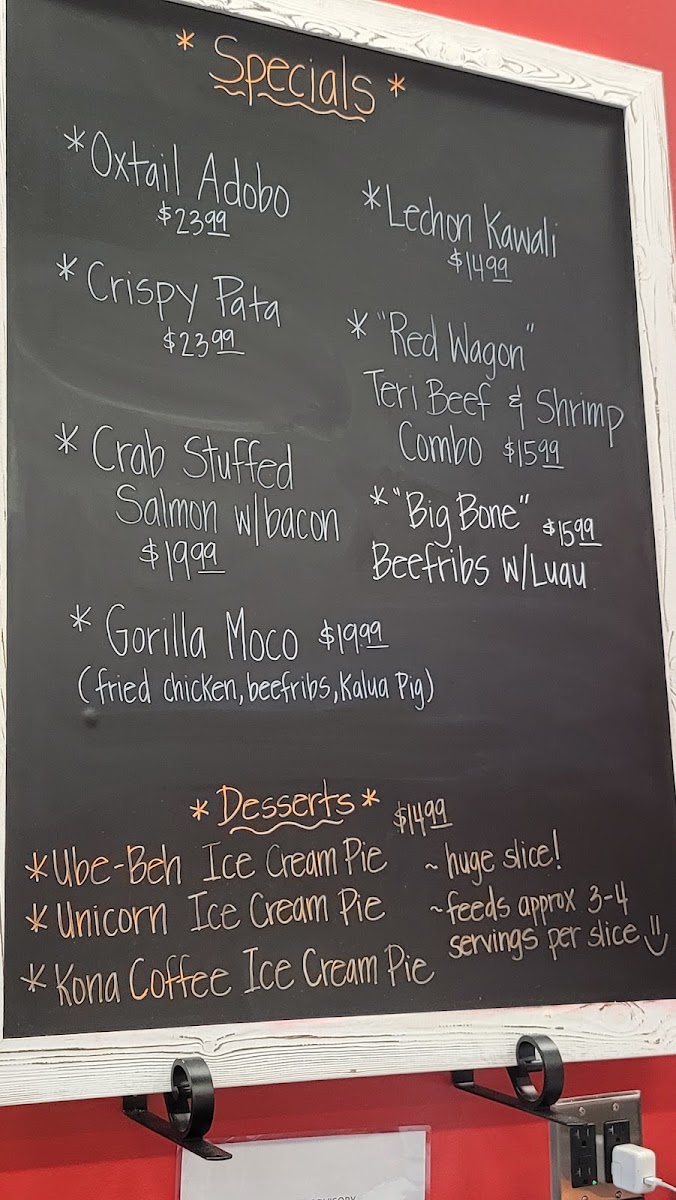 * Specials *
* Oxtail Adobo
$23.99
* Crispy Pata
$23.99
* Crab Stuffed
Salmon w/bacon
$19.99
* Lechon Kawali
$14.99
* "Red Wagon"
Teri Beef & Shrimp
Combo $15.99
* "Big Bone" $15.99
Beefribs w/Luau
* Gorilla Moco $19.99
(fried chicken, beefribs, Kalua Pig)
* Desserts * $14.99
* Ube-Beh Ice Cream Pie
* Unicorn Ice Cream Pie
* Kona Coffee Ice Cream Pie
~ huge slice!
~ feeds approx 3-4
servings per slice